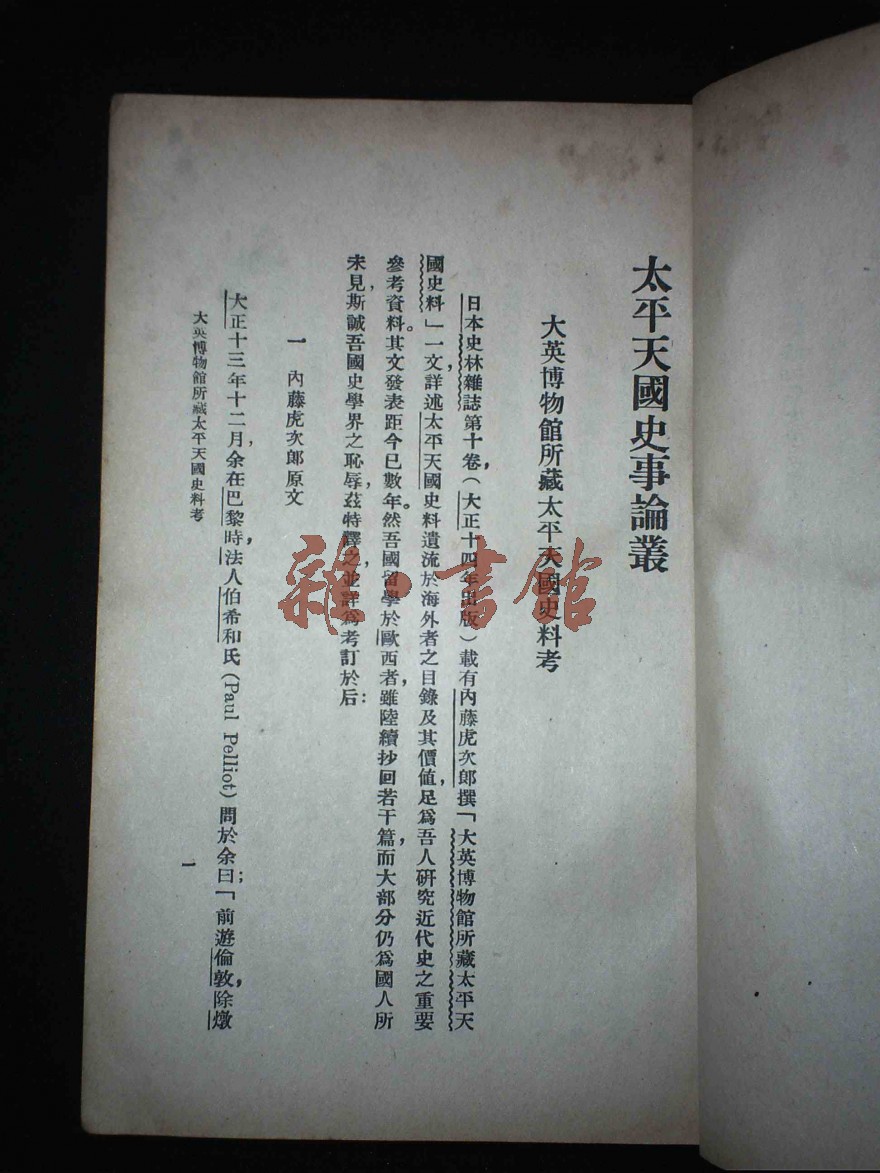 太平天國史事論叢
大英博物館所藏太平天國史料考
日本史林雜誌第十卷，（大正十四年出版）載有內藤虎次郎撰「大英博物館所藏太平天
國史料」一文，詳述太平天國史料遺流於海外者之目錄及其價値，足爲吾人硏究近代史之重要
參考資料。其文發表距今已數年。然吾國留學於歐西者，雖陸續抄回若干篇，而大部分仍爲國人所
未見，斯誠吾國史學界之恥辱，茲特譯之，並詳爲考訂於后：
一　內藤虎次郎原文
大正十三年十二月，余在巴黎時，法人伯希和氏(Paul Pelliot)問於余曰；「前遊倫敦，除燉
大英博物館所藏太平天國史料考
一
雜·書館